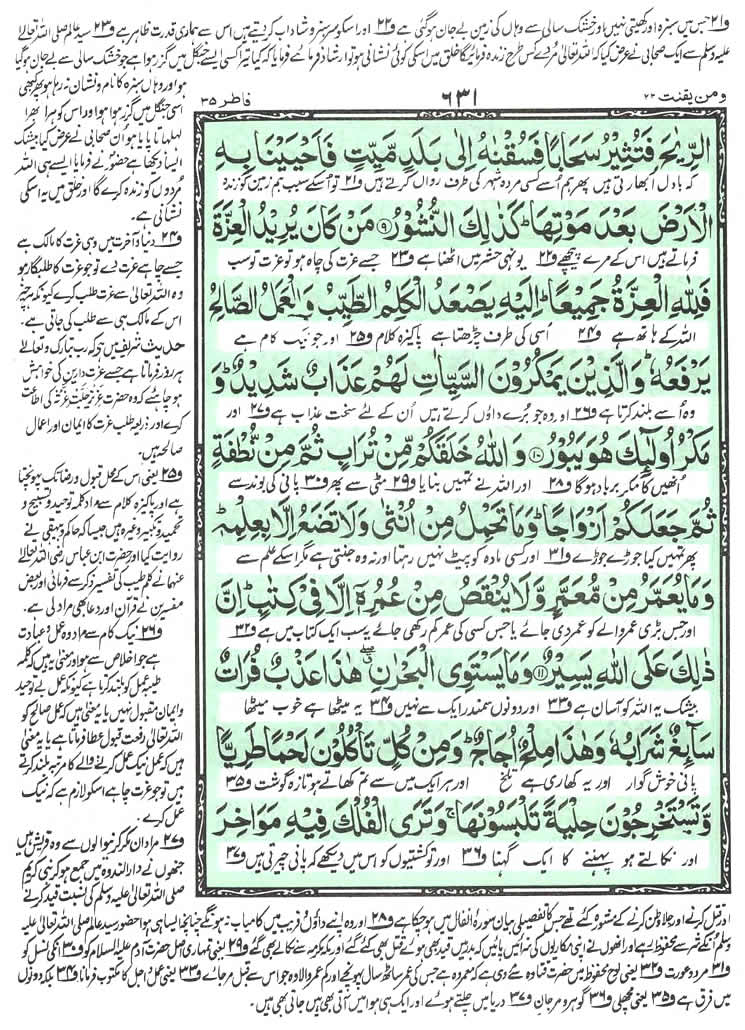 و۲۱ جس میں سبزہ اور کھیتی نہیں اور خشک سالی سے وہاں کی زمین بے جان ہوگئی ہے و۲۲ اور اسکو سرسبز و شاداب کردیتے ہیں اس سے ہماری قدرت ظاہر ہے و۲۳ سید عالم صلی اللہ تعالیٰ
علیہ وسلم سے ایک صحابی نے عرض کیا کہ اللہ تعالیٰ مُردے کس طرح زندہ فرمائیگا خلق میں اسکی کوئی نشانی ہو تو ارشاد فرمائیے فرمایا کہ کیا تیرا کسی ایسے جنگل میں گزر ہوا ہے جو خشک سالی سے بے جان ہوگیا
ومن یقنت ۲۲
۶۳۱
فاطر ۳۵
الرِّيٰحَ فَتُثِيْرُ سَحَابًا فَسُقْنٰهُ اِلٰى بَلَدٍ مَّيِّتٍ فَاَحْيَيْنَا بِهِ
کہ بادل ابھارتی ہیں پھر ہم اُسے کسی مردہ شہر کی طرف رواں کرتے ہیں و۲۱ تو اُسکے سبب ہم زمین کو زندہ
الْاَرْضَ بَعْدَ مَوْتِهَا ؕ كَذٰلِكَ النُّشُوْرُ ۹ مَنْ كَانَ يُرِيْدُ الْعِزَّةَ
فرماتے ہیں اس کے مرے پیچھے و۲۲ یونہی حشر میں اٹھنا ہے و۲۳ جسے عزت کی چاہ ہو تو عزت تو سب
فَلِلّٰهِ الْعِزَّةُ جَمِيْعًا ؕ اِلَيْهِ يَصْعَدُ الْكَلِمُ الطَّيِّبُ وَالْعَمَلُ الصَّالِحُ
اللہ کے ہاتھ ہے و۲۴ اُسی کی طرف چڑھتا ہے پاکیزہ کلام و۲۵ اور جو نیک کام ہے
يَرْفَعُهٗ ؕ وَالَّذِيْنَ يَمْكُرُوْنَ السَّيِّاٰتِ لَهُمْ عَذَابٌ شَدِيْدٌ ؕ وَ
وہ اُسے بلند کرتا ہے و۲۶ اور وہ جو بُرے داؤں کرتے ہیں اُن کے لئے سخت عذاب ہے و۲۷ اور
مَكْرُ اُولٰٓئِكَ هُوَ يَبُوْرُ ۱۰ وَاللّٰهُ خَلَقَكُمْ مِّنْ تُرَابٍ ثُمَّ مِنْ نُّطْفَةٍ
اُنھیں کا مکر برباد ہوگا و۲۸ اور اللہ نے تمہیں بنایا و۲۹ مٹی سے پھر و۳۰ پانی کی بوند سے
ثُمَّ جَعَلَكُمْ اَزْوَاجًا ؕ وَمَا تَحْمِلُ مِنْ اُنْثٰى وَلَا تَضَعُ اِلَّا بِعِلْمِهٖ ؕ
پھر تمہیں کیا جوڑے جوڑے و۳۱ اور کسی مادہ کو پیٹ نہیں رہتا اور نہ وہ جنتی ہے مگر اسکے علم سے
وَمَا يُعَمَّرُ مِنْ مُّعَمَّرٍ وَّلَا يُنْقَصُ مِنْ عُمُرِهٖۤ اِلَّا فِيْ كِتٰبٍ ؕ اِنَّ
اور جس بڑی عمر والے کو عمر دی جائے یا جس کسی کی عمر کم رکھی جائے یہ سب ایک کتاب میں ہے و۳۲
ذٰلِكَ عَلَى اللّٰهِ يَسِيْرٌ ۱۱ وَمَا يَسْتَوِى الْبَحْرٰنِ ۖ هٰذَا عَذْبٌ فُرَاتٌ
بیشک یہ اللہ کو آسان ہے و۳۳ اور دونوں سمندر ایک سے نہیں و۳۴ یہ میٹھا ہے خوب میٹھا
سَآئِغٌ شَرَابُهٗ وَهٰذَا مِلْحٌ اُجَاجٌ ؕ وَمِنْ كُلٍّ تَاْكُلُوْنَ لَحْمًا طَرِيًّا
پانی خوش گوار اور یہ کھاری ہے تلخ اور ہر ایک میں سے تم کھاتے ہو تازہ گوشت و۳۵
وَّتَسْتَخْرِجُوْنَ حِلْيَةً تَلْبَسُوْنَهَا ۚ وَتَرَى الْفُلْكَ فِيْهِ مَوَاخِرَ
اور نکالتے ہو پہننے کا ایک گہنا و۳۶ اور تو کشتیوں کو اس میں دیکھے کہ پانی چیرتی ہیں و۳۷
ہو اور وہاں سبزہ کا نام و نشان نہ رہا ہو پھر کبھی
اسی جنگل میں گزر ہوا ہو اور اس کو ہرا بھرا
لہلہاتا پایا ہو ان صحابی نے عرض کیا بیشک
ایسا دیکھا ہے حضور نے فرمایا ایسے ہی اللہ
مُردوں کو زندہ کرے گا اور خلق میں یہ اسکی
نشانی ہے۔
و۲۴ دنیا و آخرت میں وہی عزت کا مالک ہے
جسے چاہے عزت دے تو جو عزت کا طلبگار ہو
وہ اللہ تعالیٰ سے عزت طلب کرے کیونکہ ہر چیز
اس کے مالک ہی سے طلب کی جاتی ہے۔
حدیث شریف میں ہے کہ رب تبارک و تعالےٰ
ہر روز فرماتا ہے جسے عزت دارین کی خواہش
ہو چاہئے کہ وہ حضرت عزیز جلت عزتہ کی اطاعت
کرے اور ذریعہ طلب عزت کا ایمان اور اعمال
صالحہ ہیں۔
و۲۵ یعنی اس کے محل قبول و رضا تک پہونچتا
ہے اور پاکیزہ کلام سے مراد کلمہ توحید و تسبیح و
تحمید و تکبیر وغیرہ ہیں جیسا کہ حاکم و بیہقی نے
روایت کیا اور حضرت ابن عباس رضی اللہ تعالیٰ
عنہما نے کلم طیب کی تفسیر ذکر سے فرمائی اور بعض
مفسرین نے قرآن اور دعا بھی مراد لی ہے۔
و۲۶ نیک کام سے مراد وہ عمل و عبادت
ہے جو اخلاص سے ہو اور معنی یہ ہیں کہ کلمہ
طیبہ عمل کو بلند کرتا ہے کیونکہ عمل بے توحید
و ایمان مقبول نہیں یا یہ معنی ہیں کہ عمل صالح کو
اللہ تعالیٰ رفعت قبول عطا فرماتا ہے یا یہ معنی
ہیں کہ عمل نیک عمل کرنے والے کا مرتبہ بلند کرتے
ہیں تو جو عزت چاہے اسکو لازم ہے کہ نیک
عمل کرے۔
و۲۷ مراد ان مکر کرنے والوں سے وہ قریش ہیں
جنھوں نے دارالندوہ میں جمع ہو کر نبی کریم
صلی اللہ تعالیٰ علیہ وسلم کی نسبت قید کرنے
اور قتل کرنے اور جلا وطن کرنے کے مشورہ کئے تھے جس کا تفصیلی بیان سورۂ انفال میں ہوچکا ہے و۲۸ اور وہ اپنے داؤں و فریب میں کامیاب نہ ہونگے چنانچہ ایسا ہی ہوا حضور سید عالم صلی اللہ تعالیٰ علیہ
وسلم انکے شر سے محفوظ رہے اور انھوں نے اپنی مکاریوں کی سزائیں پائیں کہ بدر میں قید بھی ہوئے قتل بھی کئے گئے اور مکہ مکرمہ سے نکالے بھی گئے و۲۹ یعنی تمہاری اصل حضرت آدم علیہ السلام کو و۳۰ انکی نسل کو
و۳۱ مرد و عورت و۳۲ یعنی لوح محفوظ میں حضرت قتادہ سے مروی ہے کہ معمر وہ ہے جس کی عمر ساٹھ سال پہونچے اور کم عمر والا وہ جو اس سے قبل مر جائے و۳۳ یعنی عمل و اجل کا مکتوب فرمانا و۳۴ بلکہ دونوں میں
فرق ہے و۳۵ یعنی مچھلی و۳۶ گوہر و مرجان و۳۷ دریا میں چلتے ہوئے اور ایک ہی ہوا میں آتی بھی ہیں جاتی بھی ہیں۔